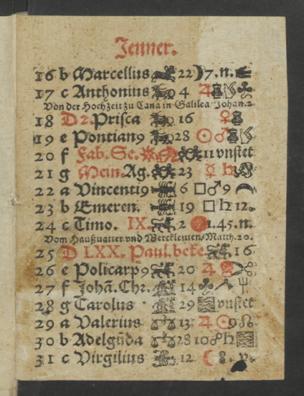 Jenner.
16 b Marcellus 22 7.n.
17 c Anthonius 4 ♃
Von der Hochzeit zu Cana in Galilea/Johan.2
18 D 2. Prisca 16 ♀
19 e Pontian9 28 ☉♂
20 f Fab. Se. 11 vnstet
21 g Mein. Ag. 23 ☿ ♄
22 a Vincenti9 6 □♂9
23 b Emeren. 19 □♄12.
24 c Timo. IX. 2 1.45.n.
Vom Haußuatter vnd Werckleuten/Matth.20.
25 D LXX. Paul. beke. 16
26 e Policarp9 20 ♃
27 f Johā. Chr. 14
28 g Carolus 29 vnstet
29 a Valerius 13 ♃
30 b Adelgūda 28
31 c Virgilius 12